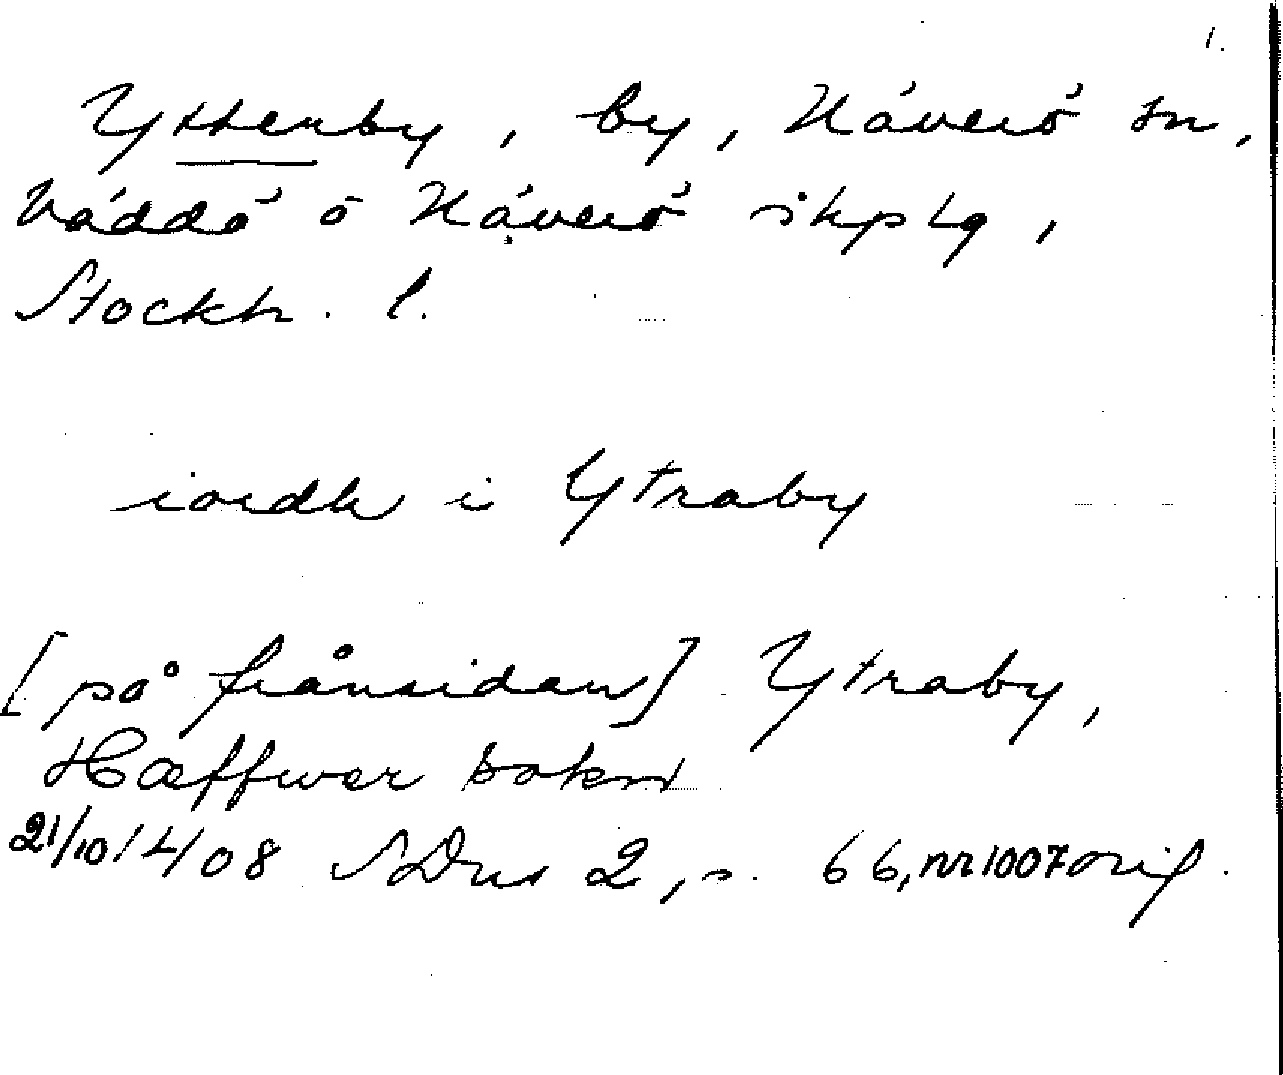 1.
Ytterby, by, Häverö sn,
Väddö o Häverö skplg,
Stockh. l.
iordh i Ytraby
[på frånsidan] Ytraby,
Hæffwer sokn
21/10 1408 SDns 2, s. 66, nr 1007 orig.